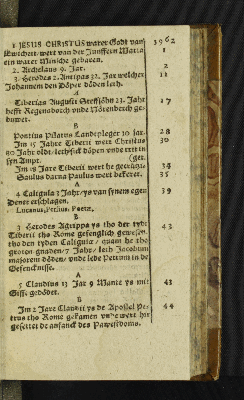 1 JESUS CHRISTUS warer Godt van 3962
ewicheit/ wert van der Junffern Maria 1
ein warer Minsche gebaren.
2. Archelaus 9. Jar. 2
3. Herodes 2. Antipas 32. Jar welcher 11
Johannem den Döper döden leth.
A
Tiberius August Steffsöhn 23. Jahr 17
hefft Regenaborch vnde Nörenberch ge-
buwet.
B
Pontius Pilatus Landtpleger 10 jar. 28
Im 15 Jahre Tiberii wert Christus 30
30 Jahr oldt/ leth sick döpen vnde tritt in
syn Ampt. (get.
Im 18 Jare Tiberii wert he gecrüzi- 34
Saulus darna Paulus wert bekeret. 35
A
4 Caligula 3 Jahr/ ys van synem egen 39
Dener erschlagen.
Lucanus, Persius, Poetæ.
B
3 Herodes Agrippa ys tho der tydt 43
Tiberii tho Rome gefenglich gewesen/
tho den tyden Caligulæ/ quam he tho
groten gnaden/ 7 Jahr/ leth Jacobum
majorem döden/ vnde lede Petrum in de
Gefencknisse.
A
5 Claudius 13 Jar 9 Mante ys mit 43
Gifft gedödet.
B
Im 2 Jare Claudii ys de Apostel Pe- 44
trus tho Rome gekamen vnde wert hir
gesettet de anfanck des Pawestdoms.